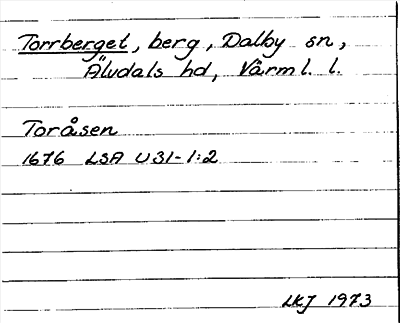 Torrberget, berg, Dalby sn,
Älvdals hd, Värml. l.
Toråsen
1676 LSA U31-1:2
LKJ 1973